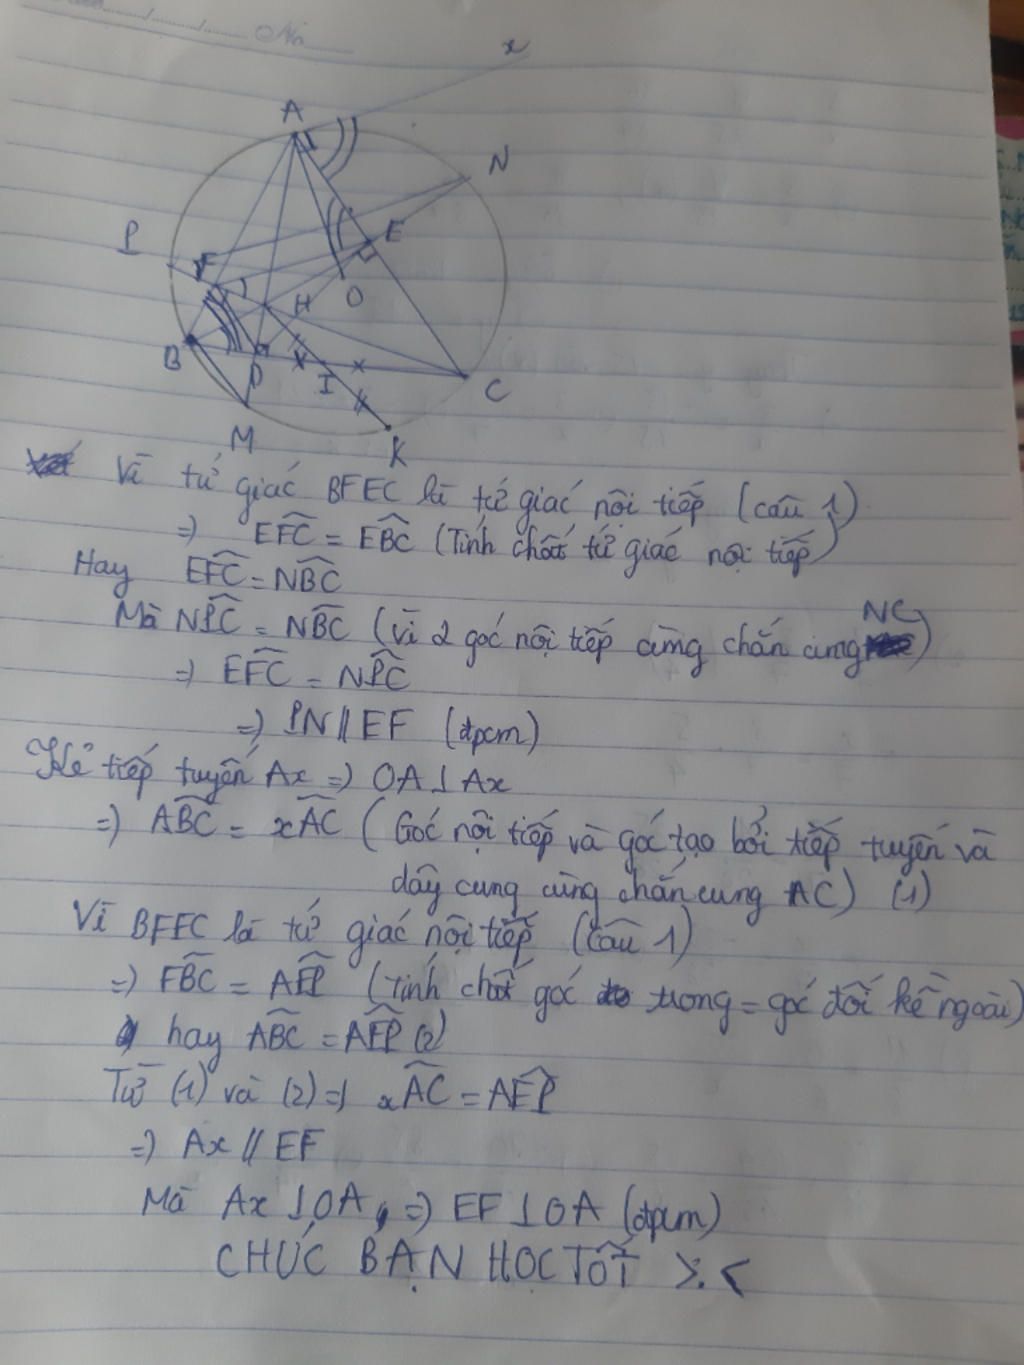 No
x
A
N
P
F
E
H
O
B
D
I
C
M
K
Vì tứ giác BFEC là tứ giác nội tiếp (câu 1)
=> EFC = EBC (Tính chất tứ giác nội tiếp)
Hay EFC = NBC
NC
Mà NPC = NBC (vì 2 góc nội tiếp cùng chắn cung )
=> EFC = NPC
=> PN // EF (đpcm)
Kẻ tiếp tuyến Ax => OA ⊥ Ax
=> ABC = xAC (Góc nội tiếp và góc tạo bởi tiếp tuyến và
dây cung cùng chắn cung AC) (1)
Vì BFEC là tứ giác nội tiếp (Câu 1)
=> FBC = AEF (tính chất góc trong = góc đối kề ngoài)
hay ABC = AEF (2)
Từ (1) và (2) => xAC = AEF
=> Ax // EF
Mà Ax ⊥ OA, => EF ⊥ OA (đpcm)
CHÚC BẠN HỌC TỐT >.<